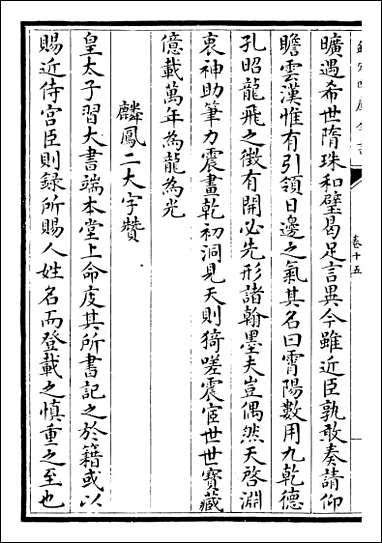 曠遇希世隋珠和璧曷足言異今雖近臣孰敢奏請仰
瞻雲漢惟有引領日邊之氣其名曰霄陽數用九乾德
孔昭龍飛之徵有開必先形諸翰墨夫豈偶然天啓淵
衷神助筆力震畫乾初洞見天則猗嗟震宧世世寶藏
億載萬年為龍為光
麟鳳二大字贊
皇太子習大書端本堂上命庋其所書記之於籍或以
賜近侍宫臣則録所賜人姓名而登載之慎重之至也
卷十五